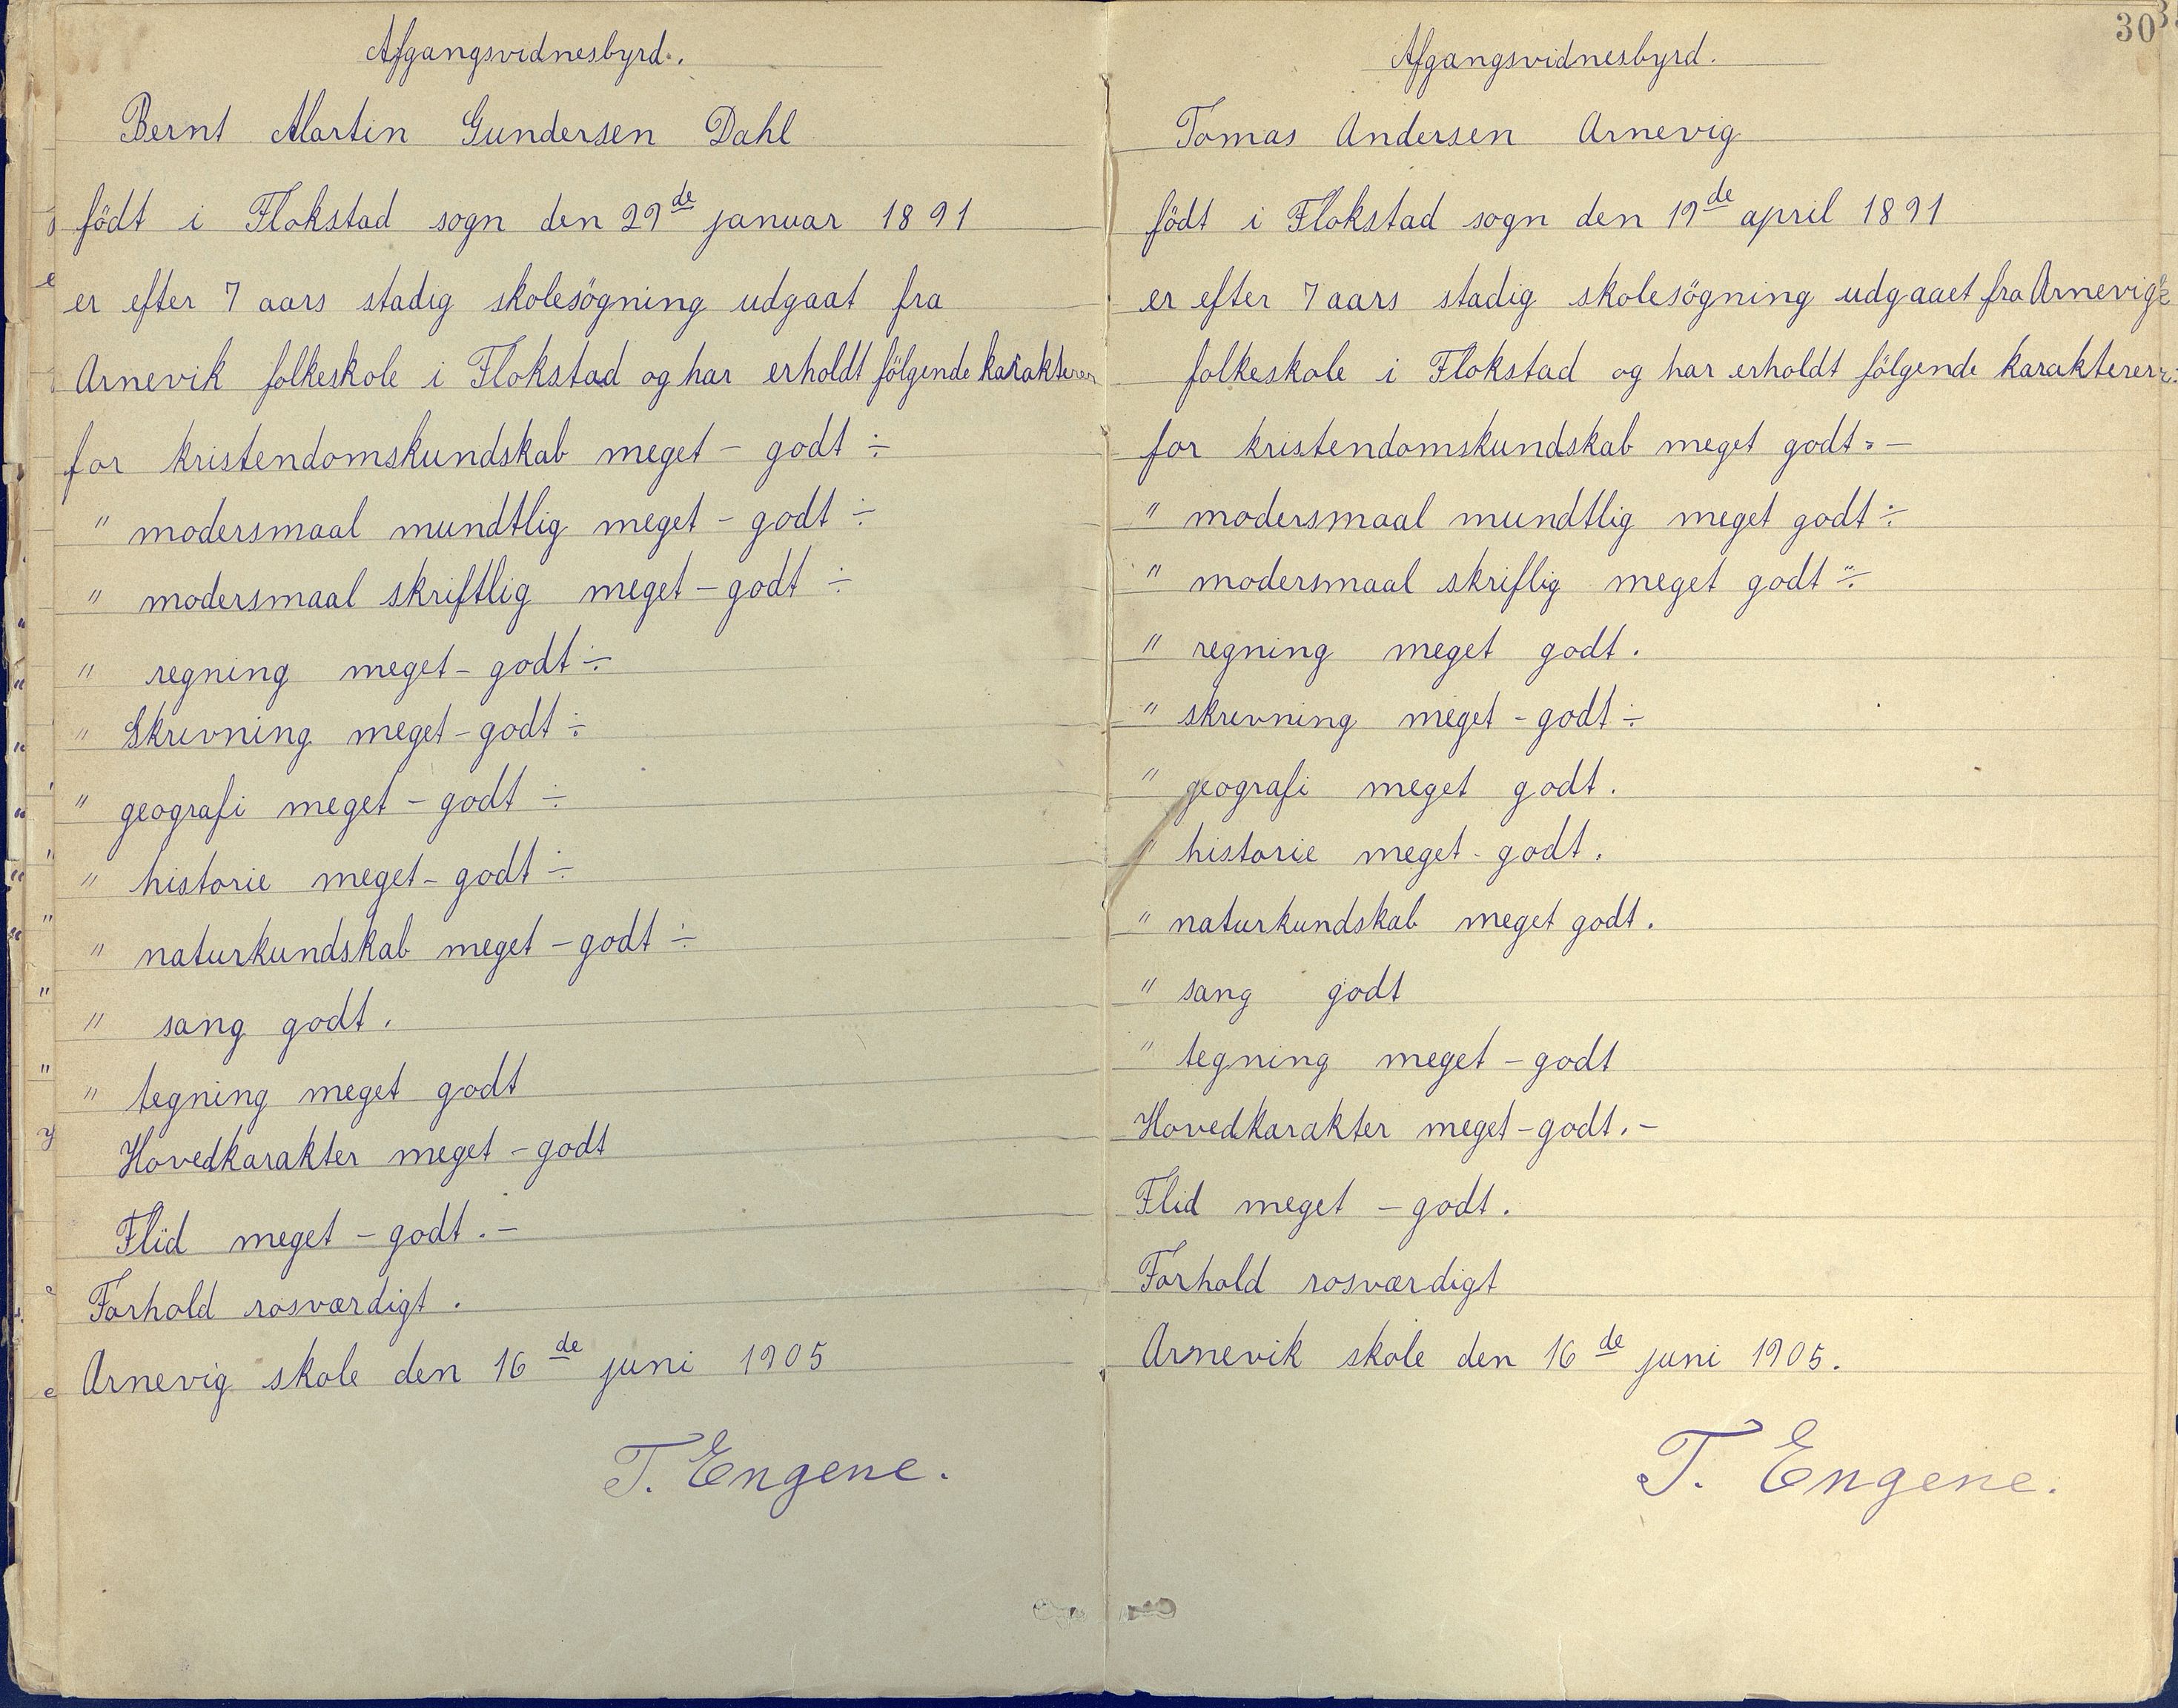 Afgangsvidnesbyrd.
Bernt Martin Gundersen Dahl
födt i Flokstad sogn den 29de januar 1891
er efter 7 aars stadig skolesögning udgaat fra
Arnevik folkeskole i Flokstad og har erholdt fölgende karakterer
for kristendomskundskab meget - godt ÷
" modersmaal mundtlig meget - godt ÷
" modersmaal skriftlig meget - godt ÷
" regning meget - godt ÷
" Skrivning meget - godt ÷
" geografi meget - godt ÷
" historie meget - godt ÷
" naturkundskab meget - godt ÷
" sang godt.
" tegning meget godt
Hovedkarakter meget - godt
Flid meget - godt. -
Forhold rosværdigt.
Arnevig skole den 16de juni 1905
T. Engene.
30
Afgangsvidnesbyrd.
Tomas Andersen Arnevig
födt i Flokstad sogn den 19de april 1891
er efter 7 aars stadig skolesögning udgaaet fra Arnevig
folkeskole i Flokstad og har erholdt fölgende karakterer
for kristendomskundskab meget godt. -
" modersmaal mundtlig meget godt ÷
" modersmaal skriflig meget godt ÷
" regning meget godt.
" skrivning meget - godt ÷
" geografi meget godt.
" historie meget - godt.
" naturkundskab meget godt.
" sang godt
" tegning meget - godt
Hovedkarakter meget - godt. -
Flid meget - godt.
Forhold rosværdigt
Arnevik skole den 16de juni 1905.
T. Engene.